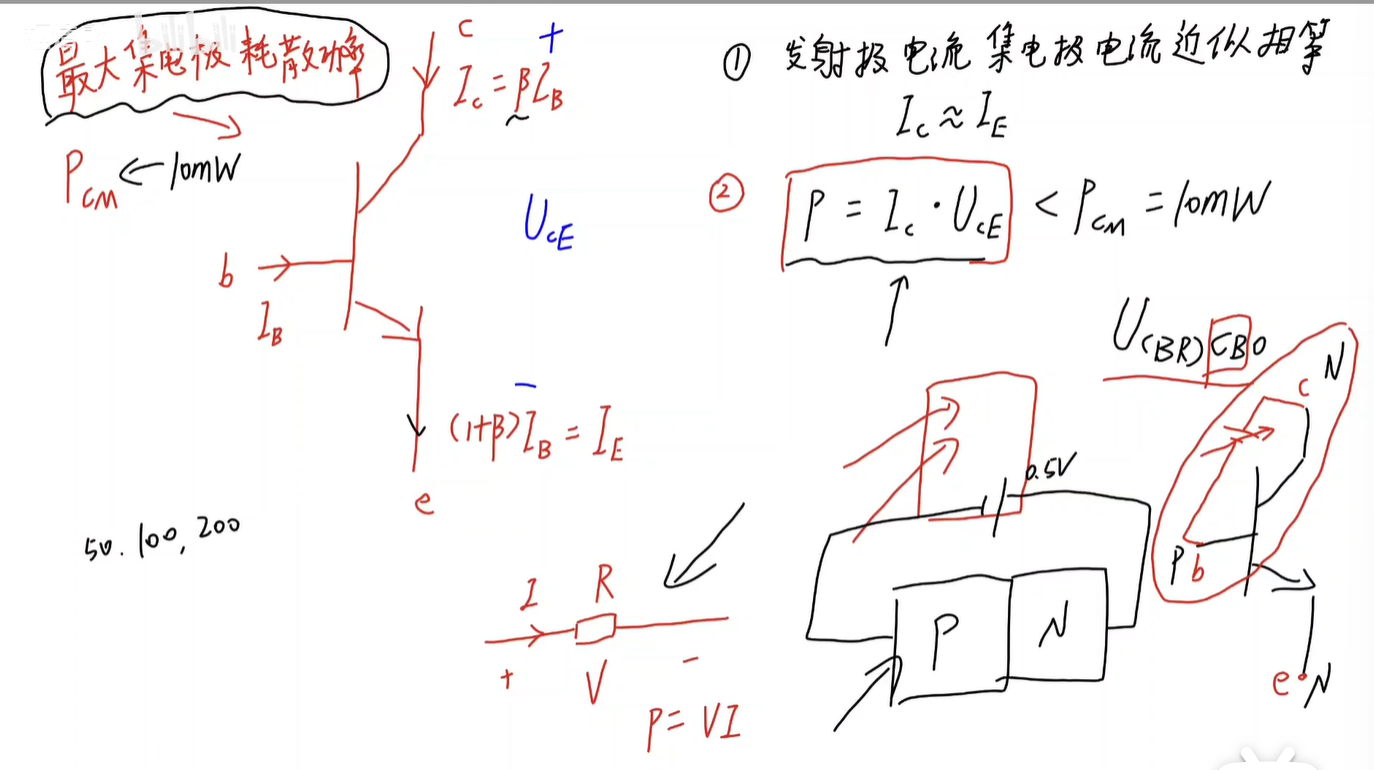 最大集电极耗散功率
P_CM ← 10mW
c
+
I_C = βI_B
~
U_CE
b
I_B
−
(1+β)I_B = I_E
e
50.100,200
① 发射极电流集电极电流近似相等
I_C ≈ I_E
② P = I_C · U_CE < P_CM = 10mW
U_(BR)CBO
N
c
0.5V
P b
P N
e N
I R
+ V −
P = VI